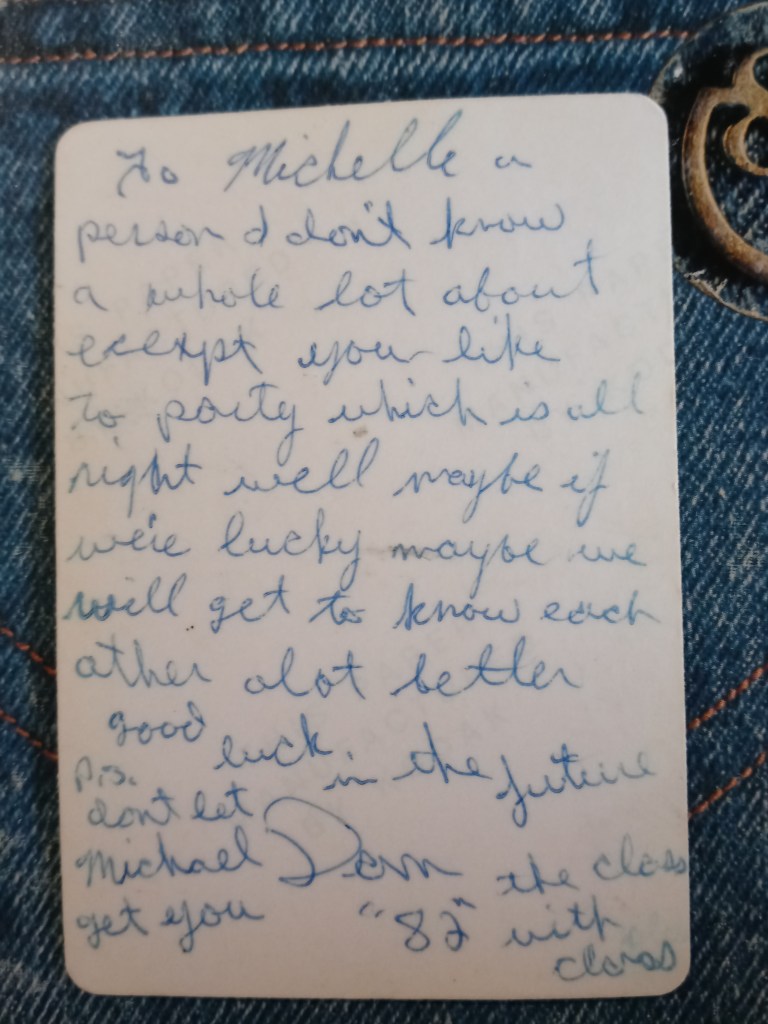 To Michelle a
person I don't know
a whole lot about
except you like
to party which is all
right well maybe if
we're lucky maybe we
will get to know each
other alot better
good luck in the future
p.s.
dont let
Michael
get you
Dan
the class
"82" with
class